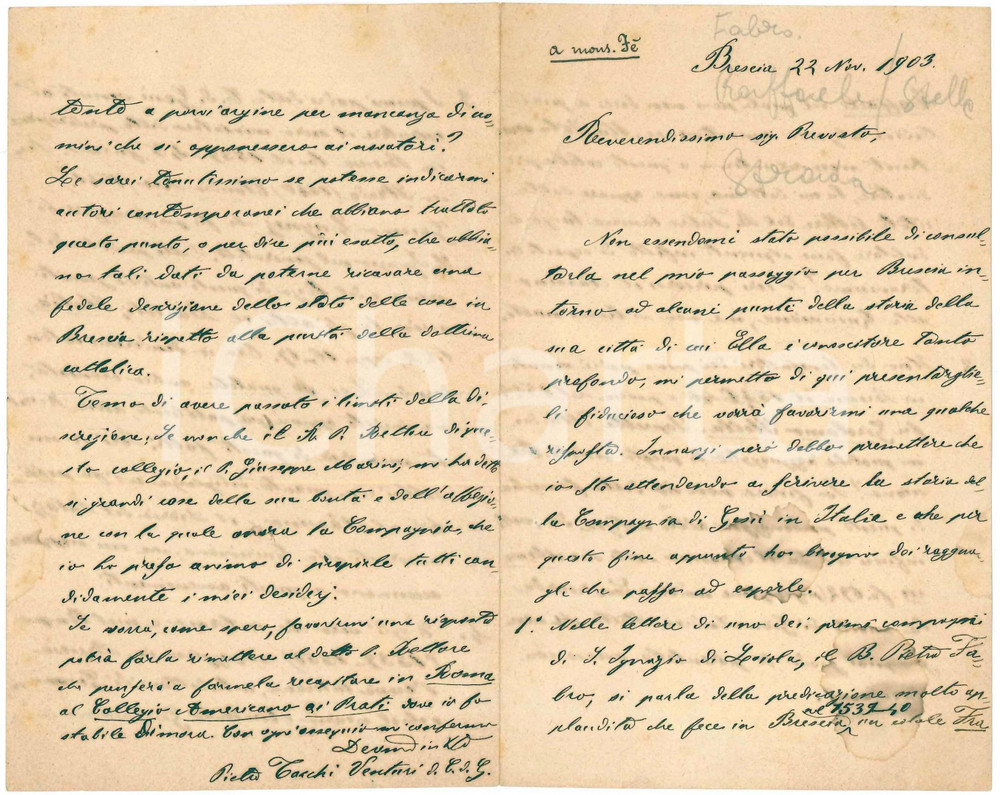 Fabro.
a mons. Fè
Brescia 22 Nov. 1903.
Raffaele / Stella
Reverendissimo sig. Prevosto,
Non essendomi stato possibile di consul-
tarla nel mio passaggio per Brescia in-
torno ad alcuni punti della storia della
sua città di cui Ella è conoscitore tanto
profondo, mi permetto di qui presentarglie-
li fiducioso che vorrà favorirmi una qualche
risposta. Innanzi però debbo premettere che
io sto attendendo a scrivere la storia del-
la Compagnia di Gesù in Italia e che per
questo fine appunto ho bisogno dei raggua-
gli che passo ad esporle.
1.° Nelle lettere di uno dei primi compagni
di S. Ignazio di Loiola, il B. Pietro Fa-
bro, si parla della predicazione molto ap-
nel 1537-40
plaudita che fece in Brescia un cotale Fra
tento a porvi argine per mancanza di uo-
mini che si opponessero ai novatori?
Le sarei tenutissimo se potesse indicarmi
autori contemporanei che abbiano trattato
questo punto, o per dire più esatto, che abbia-
no tali dati da poterne ricavare una
fedele descrizione dello stato delle cose in
Brescia rispetto alla purità della dottrina
cattolica.
Temo di avere passato i limiti della di-
screzione; Se non che il R. P. Rettore di que-
sto collegio, il P. Giuseppe Marini mi ha detto
sì grandi cose della sua bontà e dell'affezio-
ne con la quale onora la Compagnia, che
io ho preso animo di proporle tutti can-
didamente i miei desiderj.
Se vorrà, come spero, favorirmi una risposta
potrà farla rimettere al detto P. Rettore
che penserà a farmela recapitare in Roma
al Collegio Americano ai Prati dove io fo
stabile dimora. Con ogni ossequio mi confermo
Devmo in Xto
Pietro Tacchi Venturi d. C. d. G.